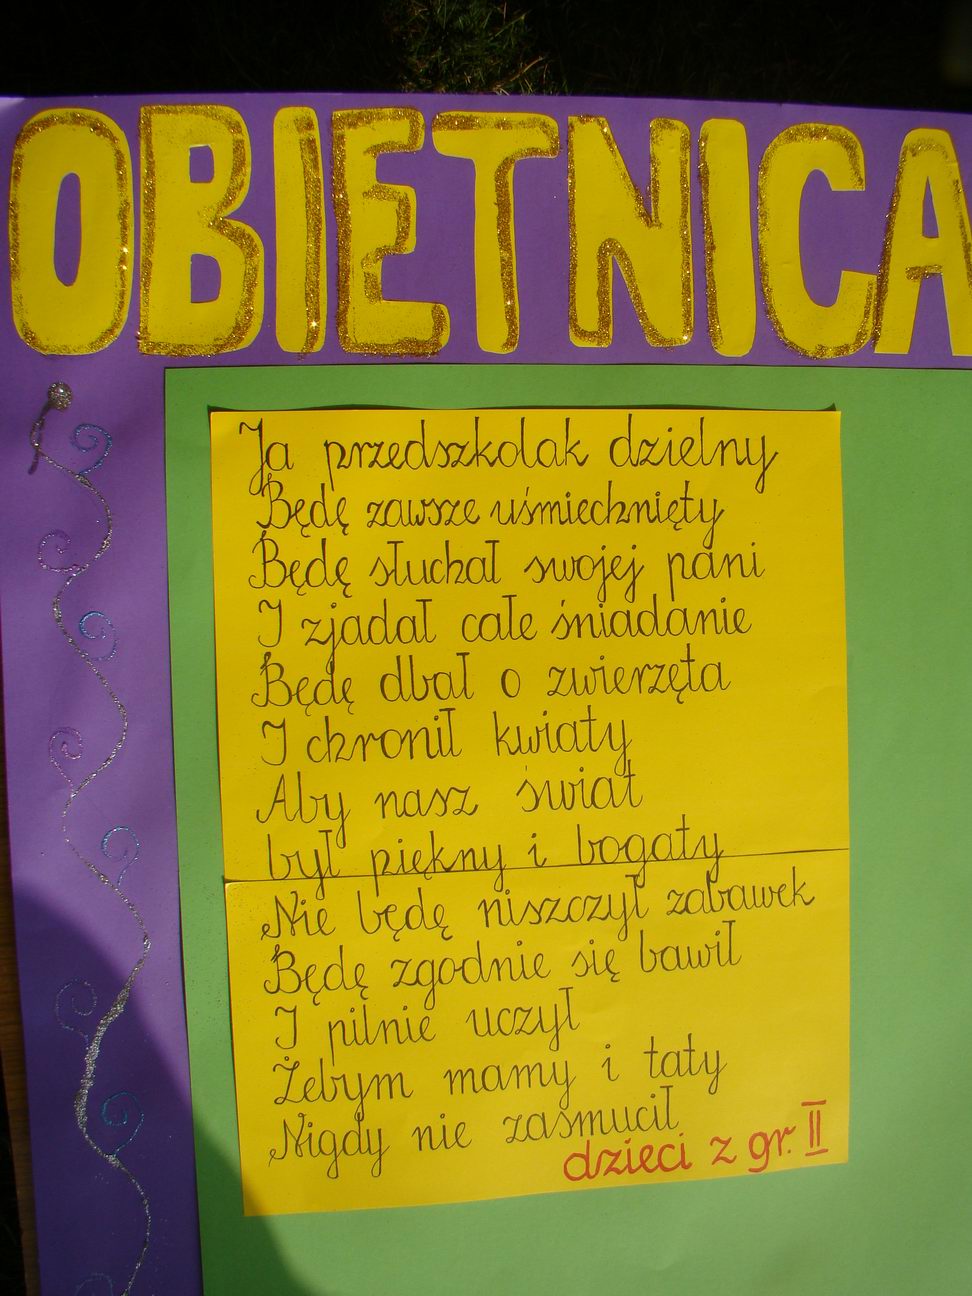 OBIETNICA
Ja przedszkolak dzielny
Będę zawsze uśmiechnięty
Będę słuchał swojej pani
I zjadał całe śniadanie
Będę dbał o zwierzęta
I chronił kwiaty
Aby nasz świat
był piękny i bogaty
Nie będę niszczył zabawek
Będę zgodnie się bawił
I pilnie uczył
Żebym mamy i taty
Nigdy nie zasmucił
dzieci z gr. II